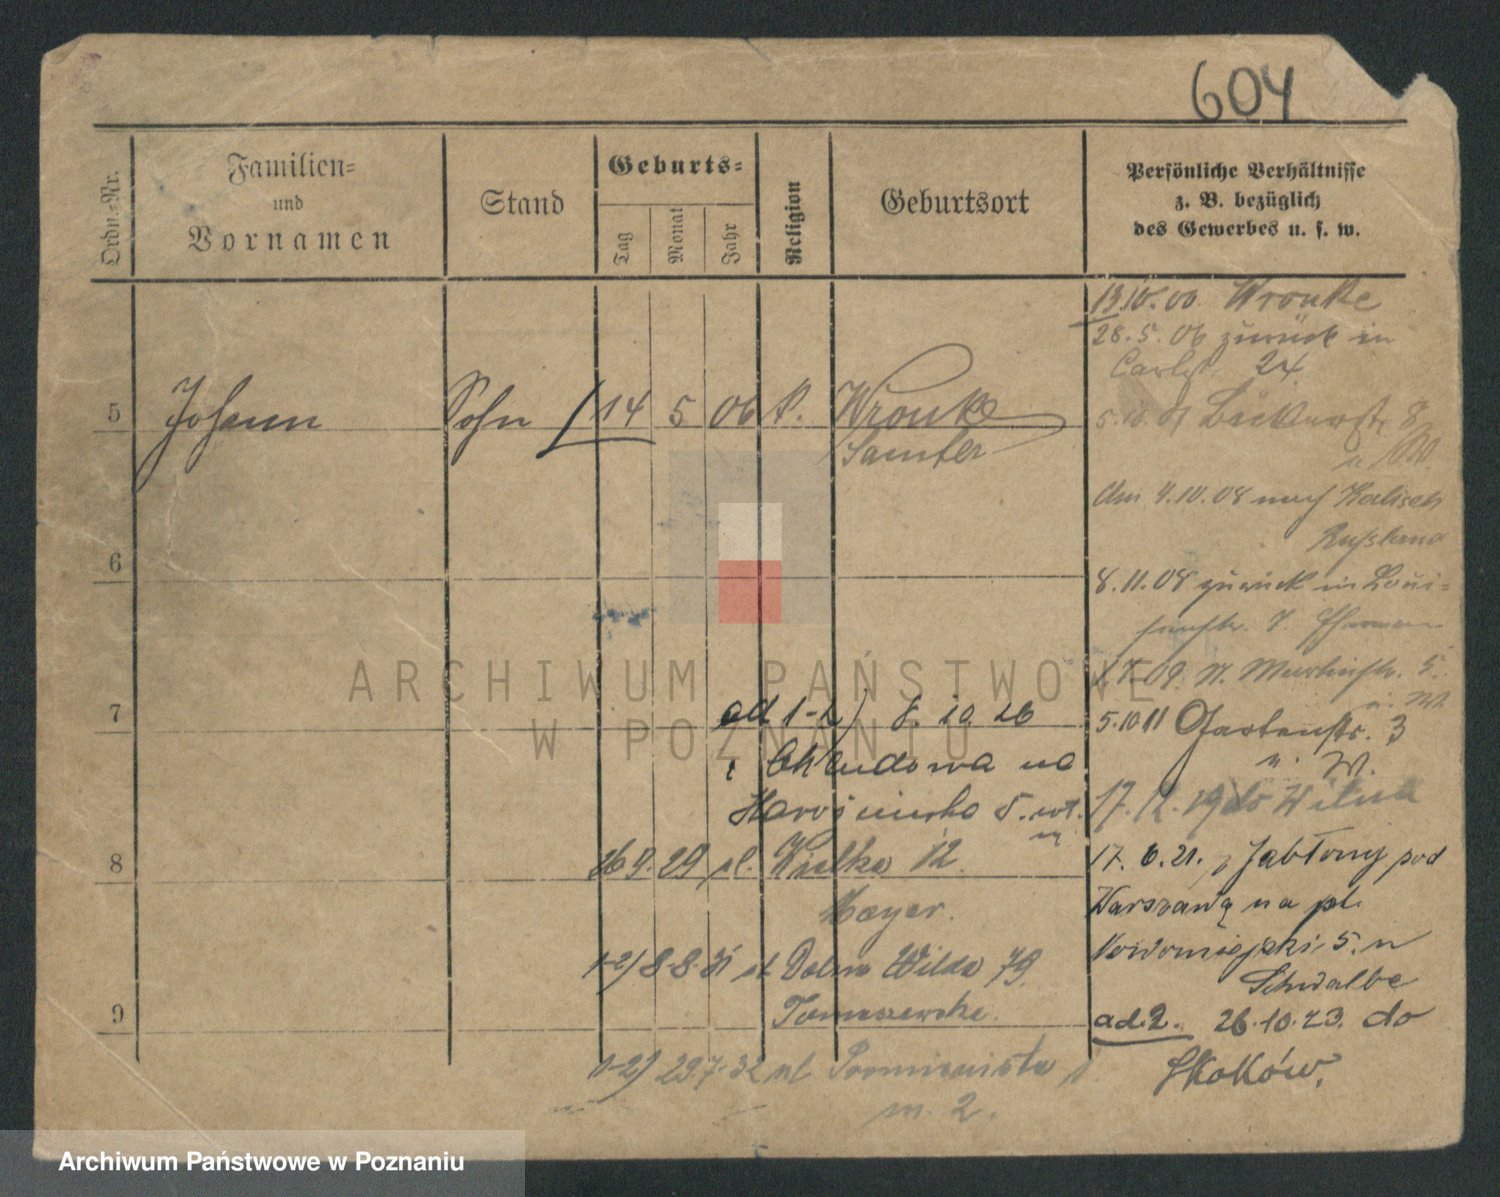 604
Ordn.-Nr.
Familien-
und
Vornamen
Stand
Geburts-
Tag
Monat
Jahr
Religion
Geburtsort
Persönliche Verhältnisse
z. B. bezüglich
des Gewerbes u. s. w.
5 Johann Sohn 14 5 06 k. Wronke
Samter
6
7
8
9
ad 1-2) 8. 10. 26
na
5.
26 9. 29 ul. Wielka 12.
Mayer.
1-2) 8-8-31 ul Dolna Wilda 79.
1-2) 29.7.32 ul
m. 2.
13.10.00. Wronke
28.5.06 zurück in
24
5.10.07 Bäckerstr. 8
Am 4.10.08 nach Kalisch
Russland
8.11.08 zurück in Loui-
senstr. 7.
1.7.09. St. Martinstr. 5.
5.10 11 Gartenstr. 3
n. W.
17. 2. 19 do Wilna
17. 6. 21. z Jabłony pod
Warszawą na pl.
Nowomiejski 5. u
Schwalbe
ad. 2. 26.10.23. do
Skoków.
ARCHIWUM PAŃSTWOWE
W POZNANIU
Archiwum Państwowe w Poznaniu